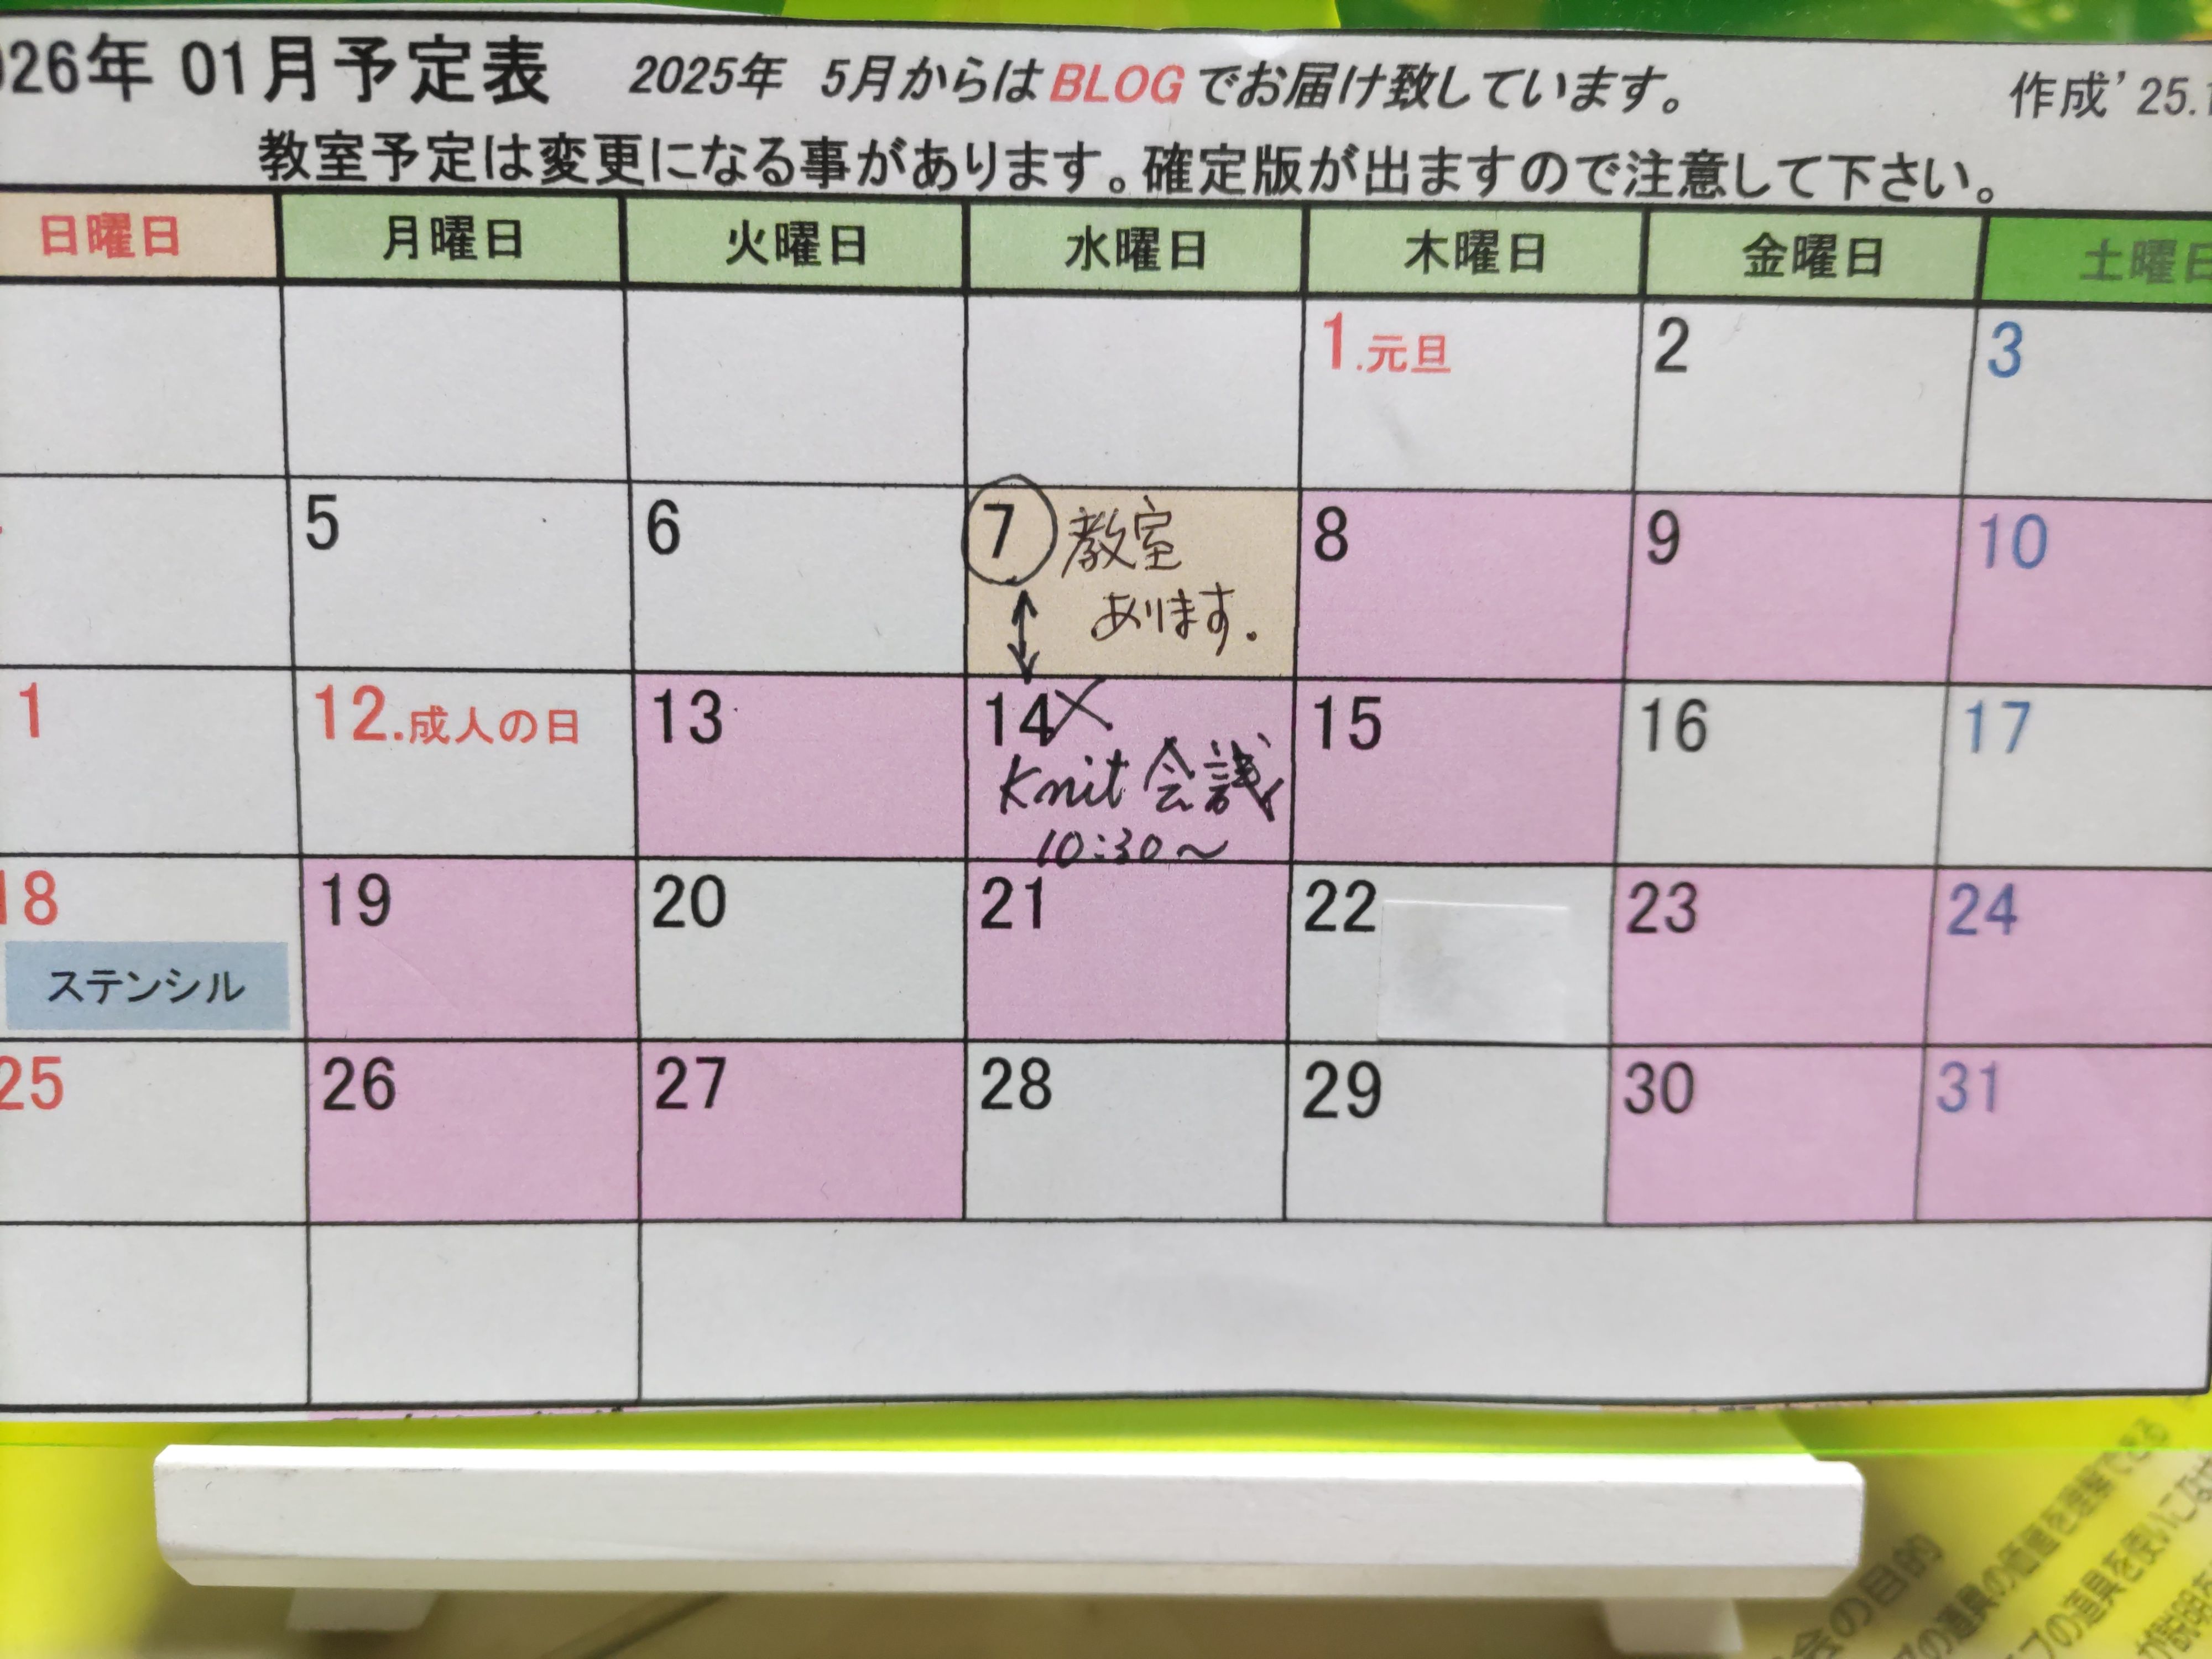 26年 01月予定表 2025年 5月からはBLOGでお届け致しています。 作成'25.
教室予定は変更になる事があります。確定版が出ますので注意して下さい。
日曜日 月曜日 火曜日 水曜日 木曜日 金曜日 土曜日
1.元旦 2 3
5 6 7 教室 8 9 10
あります.
1 12.成人の日 13 14× 15 16 17
Knit 会議
10:30〜
18 19 20 21 22 23 24
ステンシル
25 26 27 28 29 30 31
会の目的
の道具の価値を理解できる
プの道具を使いこなせ